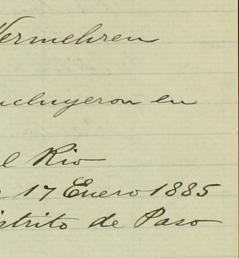 Vermehren
ncluyeron en
l Rio
17 Enero 1885
istrito de Paso